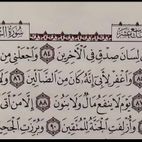 لِسَانَ صِدْقٍ فِي الْآخِرِينَ ٨٤ وَاجْعَلْنِي مِن
وَاغْفِرْ لِأَبِي إِنَّهُ كَانَ مِنَ الضَّالِّينَ ٨٦
يَوْمَ لَا يَنفَعُ مَالٌ وَلَا بَنُونَ ٨٨ إِلَّا مَنْ أَتَى
وَأُزْلِفَتِ الْجَنَّةُ لِلْمُتَّقِينَ ٩٠ وَبُرِّزَتِ الْجَحِيمُ